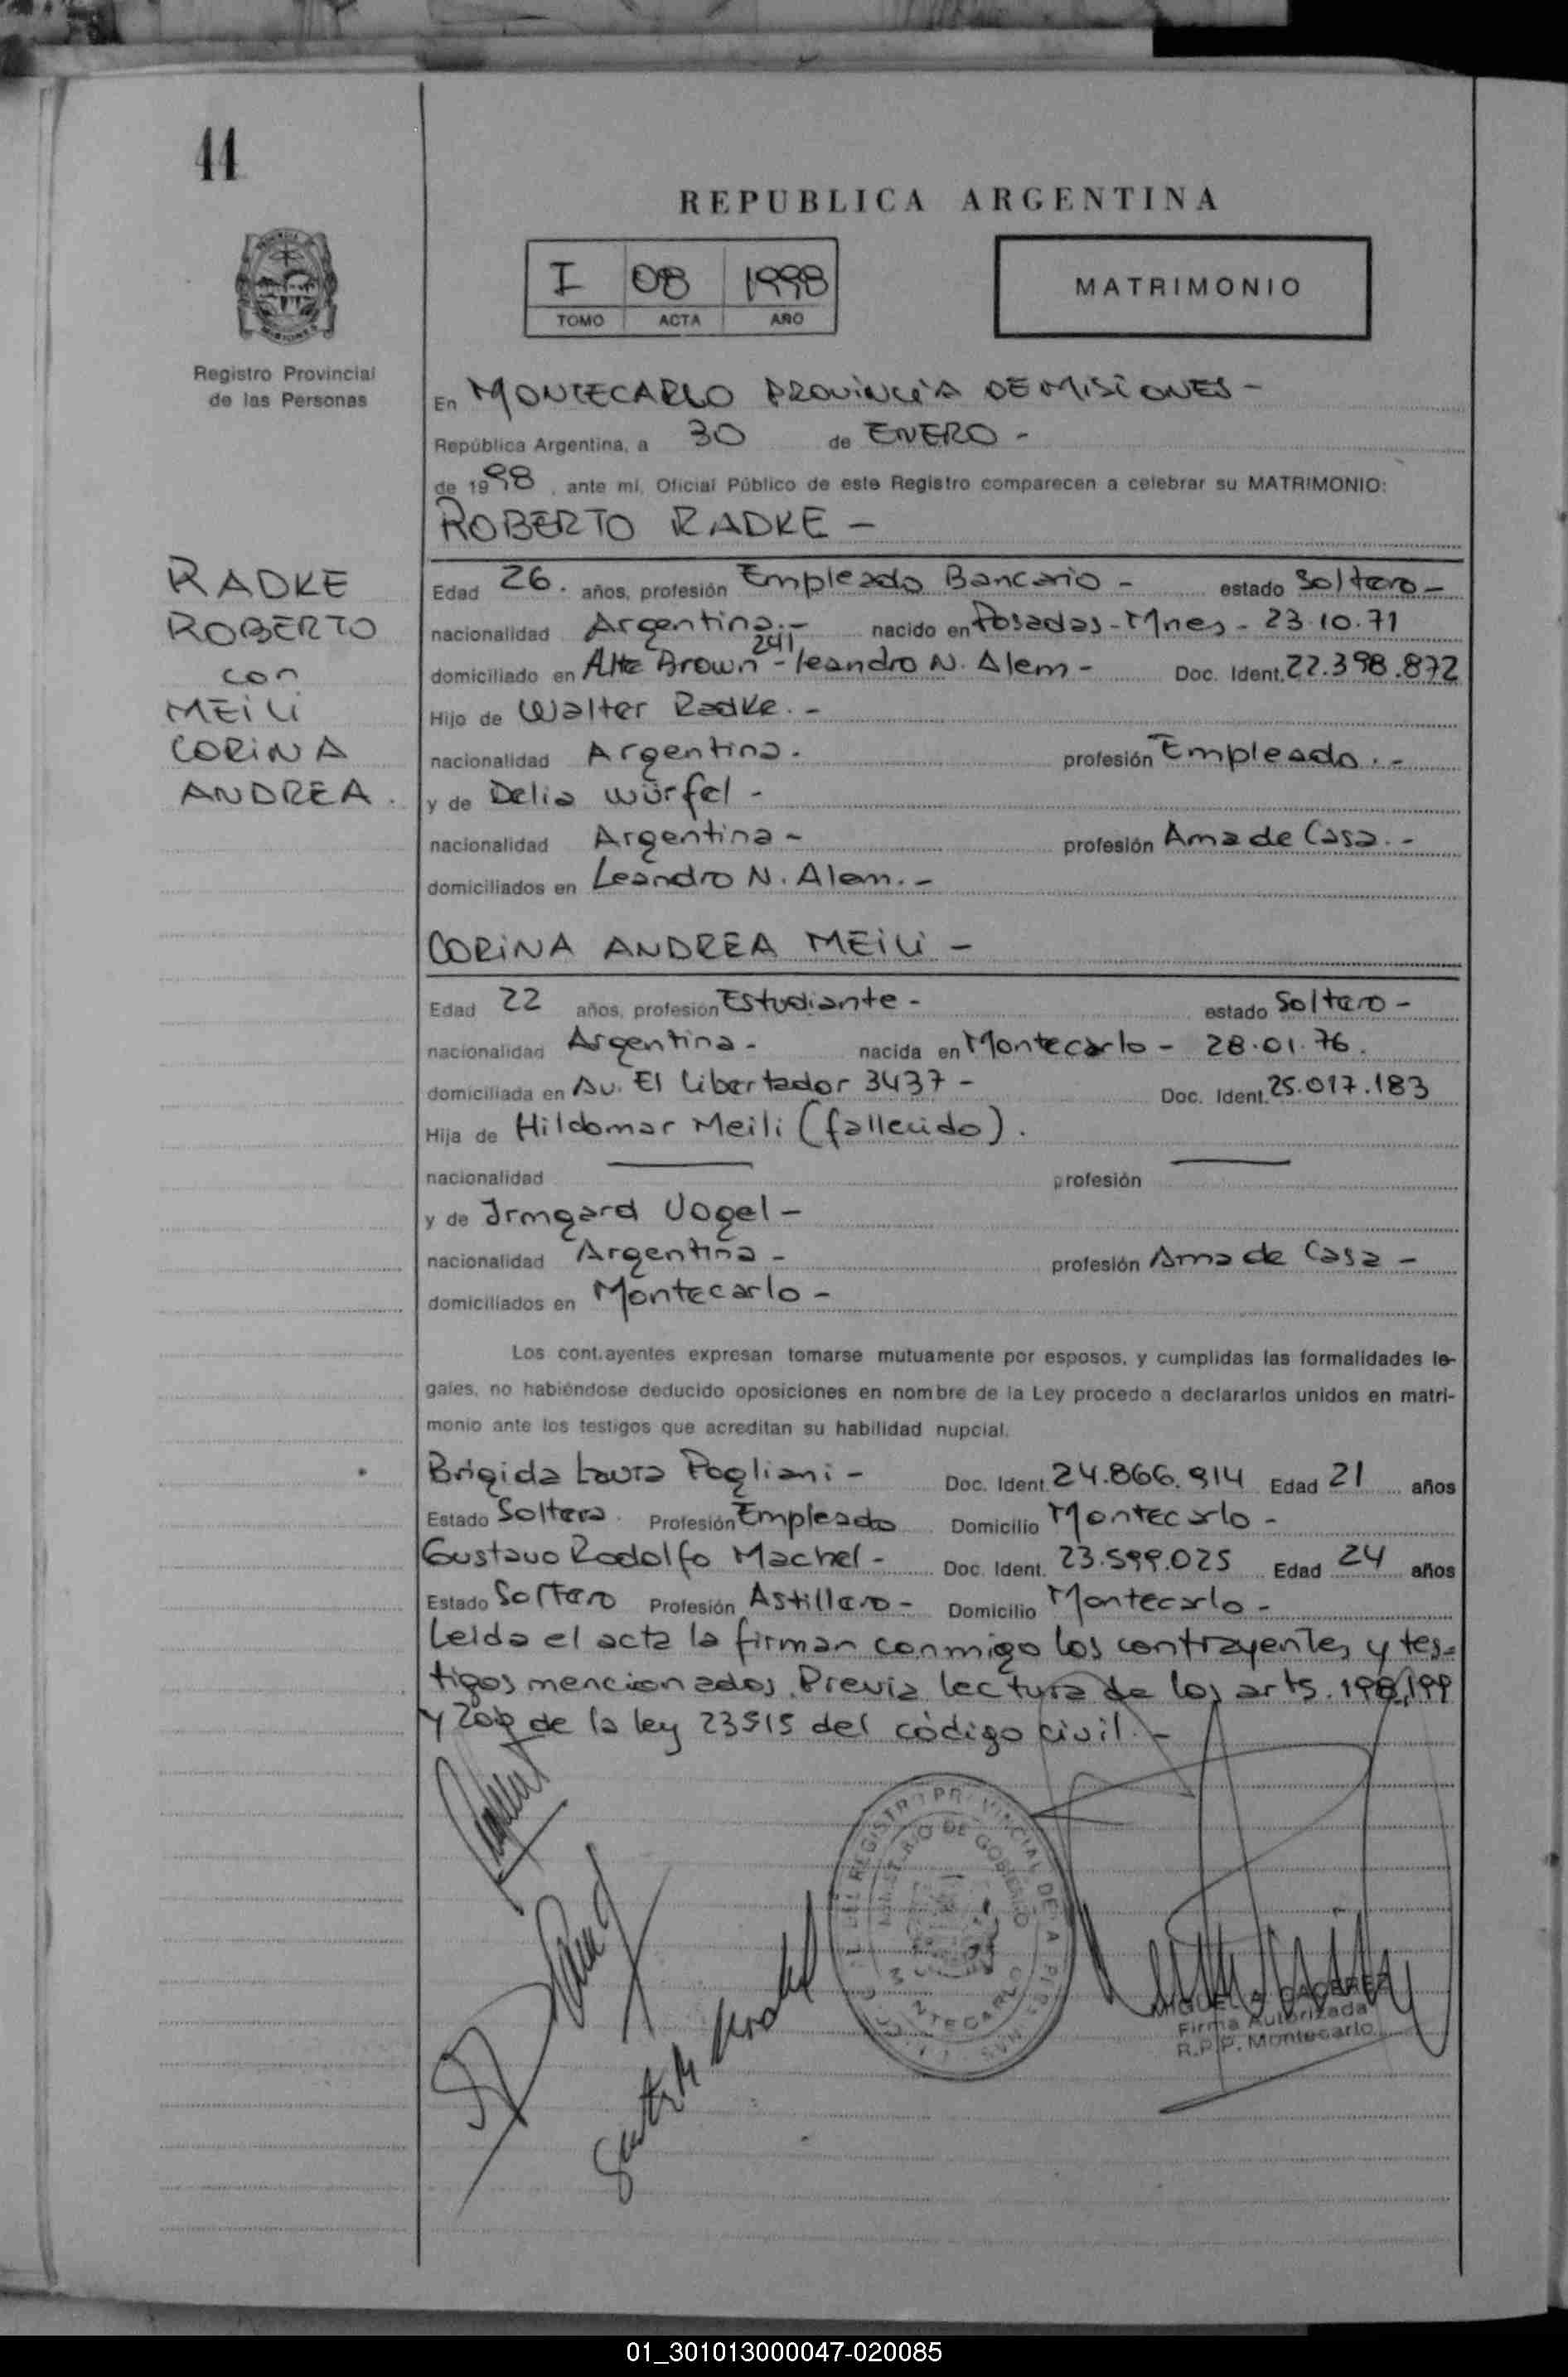 11
REPUBLICA ARGENTINA
I 08 1998
TOMO ACTA AÑO
MATRIMONIO
Registro Provincial
de las Personas
En MONTECARLO PROVINCIA DE MISIONES -
República Argentina, a 30 de ENERO -
de 1998, ante mí, Oficial Público de este Registro comparecen a celebrar su MATRIMONIO:
ROBERTO RADKE -
RADKE
ROBERTO
con
MEILI
CORINA
ANDREA.
Edad 26. años, profesión Empleado Bancario - estado Soltero -
nacionalidad Argentina.- nacido en Posadas - Mnes - 23.10.71
domiciliado en Alte Brown 241 - Leandro N. Alem - Doc. Ident. 22.398.872
Hijo de Walter Radke. -
nacionalidad Argentina. profesión Empleado. -
y de Delia Würfel -
nacionalidad Argentina - profesión Ama de Casa. -
domiciliados en Leandro N. Alem. -
CORINA ANDREA MEILI -
Edad 22 años, profesión Estudiante - estado Soltero -
nacionalidad Argentina - nacida en Montecarlo - 28.01.76.
domiciliada en Av. El Libertador 3437 - Doc. Ident. 25.017.183
Hija de Hildomar Meili (fallecido).
nacionalidad — profesión —
y de Irmgard Vogel -
nacionalidad Argentina - profesión Ama de Casa -
domiciliados en Montecarlo -
Los cont.ayentes expresan tomarse mutuamente por esposos, y cumplidas las formalidades le-
gales, no habiéndose deducido oposiciones en nombre de la Ley procedo a declararlos unidos en matri-
monio ante los testigos que acreditan su habilidad nupcial.
Brigida Laura Pogliani - Doc. Ident. 24.866.914 Edad 21 años
Estado Soltera. Profesión Empleado Domicilio Montecarlo -
Gustavo Rodolfo Machel - Doc. Ident. 23.599.025 Edad 24 años
Estado Soltero Profesión Astillero - Domicilio Montecarlo -
Leida el acta la firman conmigo los contrayentes y tes=
tigos mencionados. Previa lectura de los arts. 198,199
y 200 de la ley 23515 del código civil. -
REGISTRO PROVINCIAL DE LA PERSONAS
MINISTERIO DE GOBIERNO
MONTECARLO
MIGUEL A. CACERES
Firma Autorizada
R.P.P. Montecarlo
01_301013000047-020085